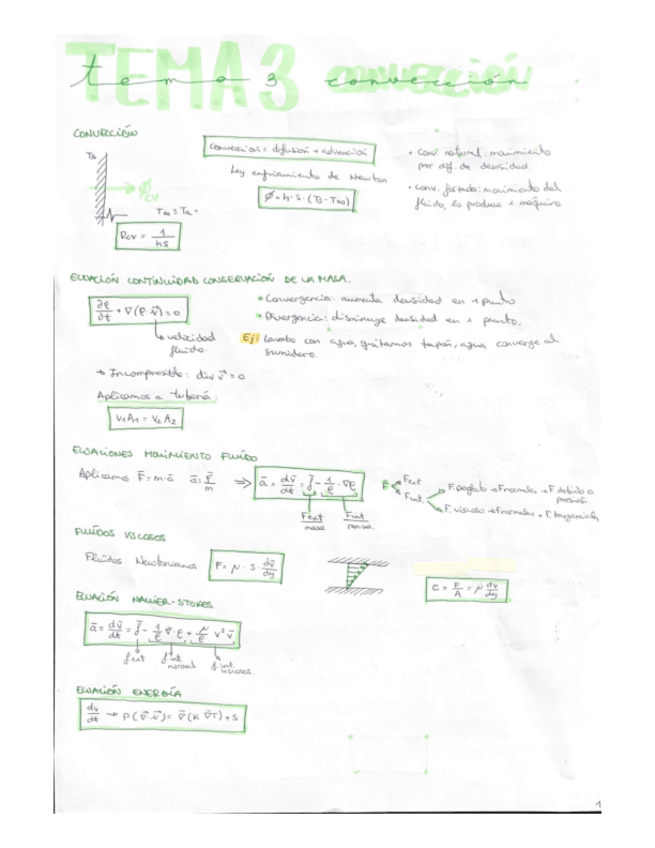 TEMA 3 CONVECCIÓN
tema 3 convección
CONVECCIÓN
Ts
ϕcv
T∞ = Ta
Rcv = 1/hS
Convección = difusión + advección
Ley enfriamiento de Newton
ϕ = h·S·(Ts - T∞)
• Conv natural: movimiento
por dif. de densidad
• Conv. forzada: movimiento del
fluido, lo produce 1 máquina
ECUACIÓN CONTINUIDAD CONSERVACIÓN DE LA MASA.
∂ρ/∂t + ∇(ρ·v⃗) = 0
velocidad
fluido.
• Convergencia: aumenta densidad en 1 punto
• Divergencia: disminuye densidad en 1 punto.
Ej: lavabo con agua, quitamos tapón, agua converge al
sumidero.
→ Incompresible: div v⃗ = 0
Aplicamos a tubería:
V1A1 = V2A2
ECUACIONES MOVIMIENTO FLUIDO
Aplicamos F̄ = m·ā ā = F̄/m ⇒ ā = dv̄/dt = f̄ - 1/ρ · ∇p
Fext/masa Fint/masa
F Fext
Fint
F. presión → F normales → F debido a
presión.
F. viscosas → F normales + F. tangencial
FLUIDOS VISCOSOS
Fluidos Newtonianos F = μ · S · dv̄/dy
τ = F/A = μ dv/dy
ECUACIÓN NAVIER-STOKES
ā = dv̄/dt = f̄ - 1/ρ ∇·p + μ/ρ ∇²v̄
f.ext f.int normal f.int viscosas.
ECUACIÓN ENERGÍA
dv/dt → P(∇⃗·v⃗) = ∇̄(K ∇̄T) + S
1